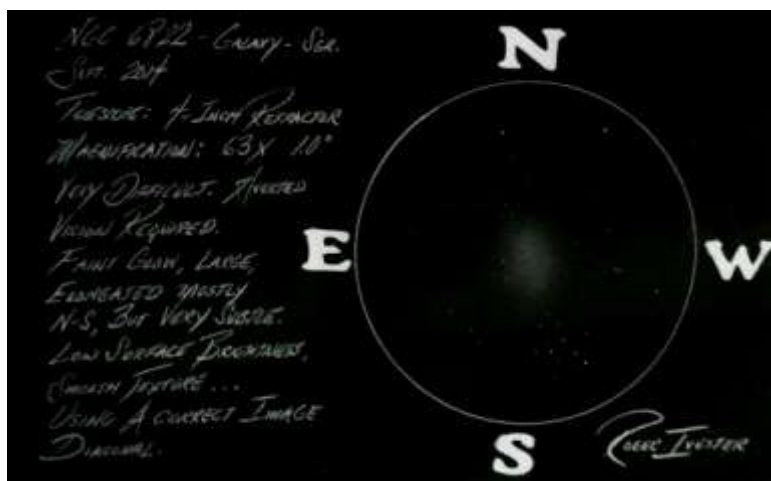 NGC 6822 - Galaxy - Sgr.
Sept. 2014
Telescope: 4-Inch Refractor
Magnification: 63X 1.0°
Very Difficult. Averted
Vision Required.
Faint Glow, Large,
Elongated mostly
N-S, But Very Subtle.
Low Surface Brightness.
Smooth Texture...
Using A Correct Image
Diagonal.
N
E
W
S
Roger Ivester